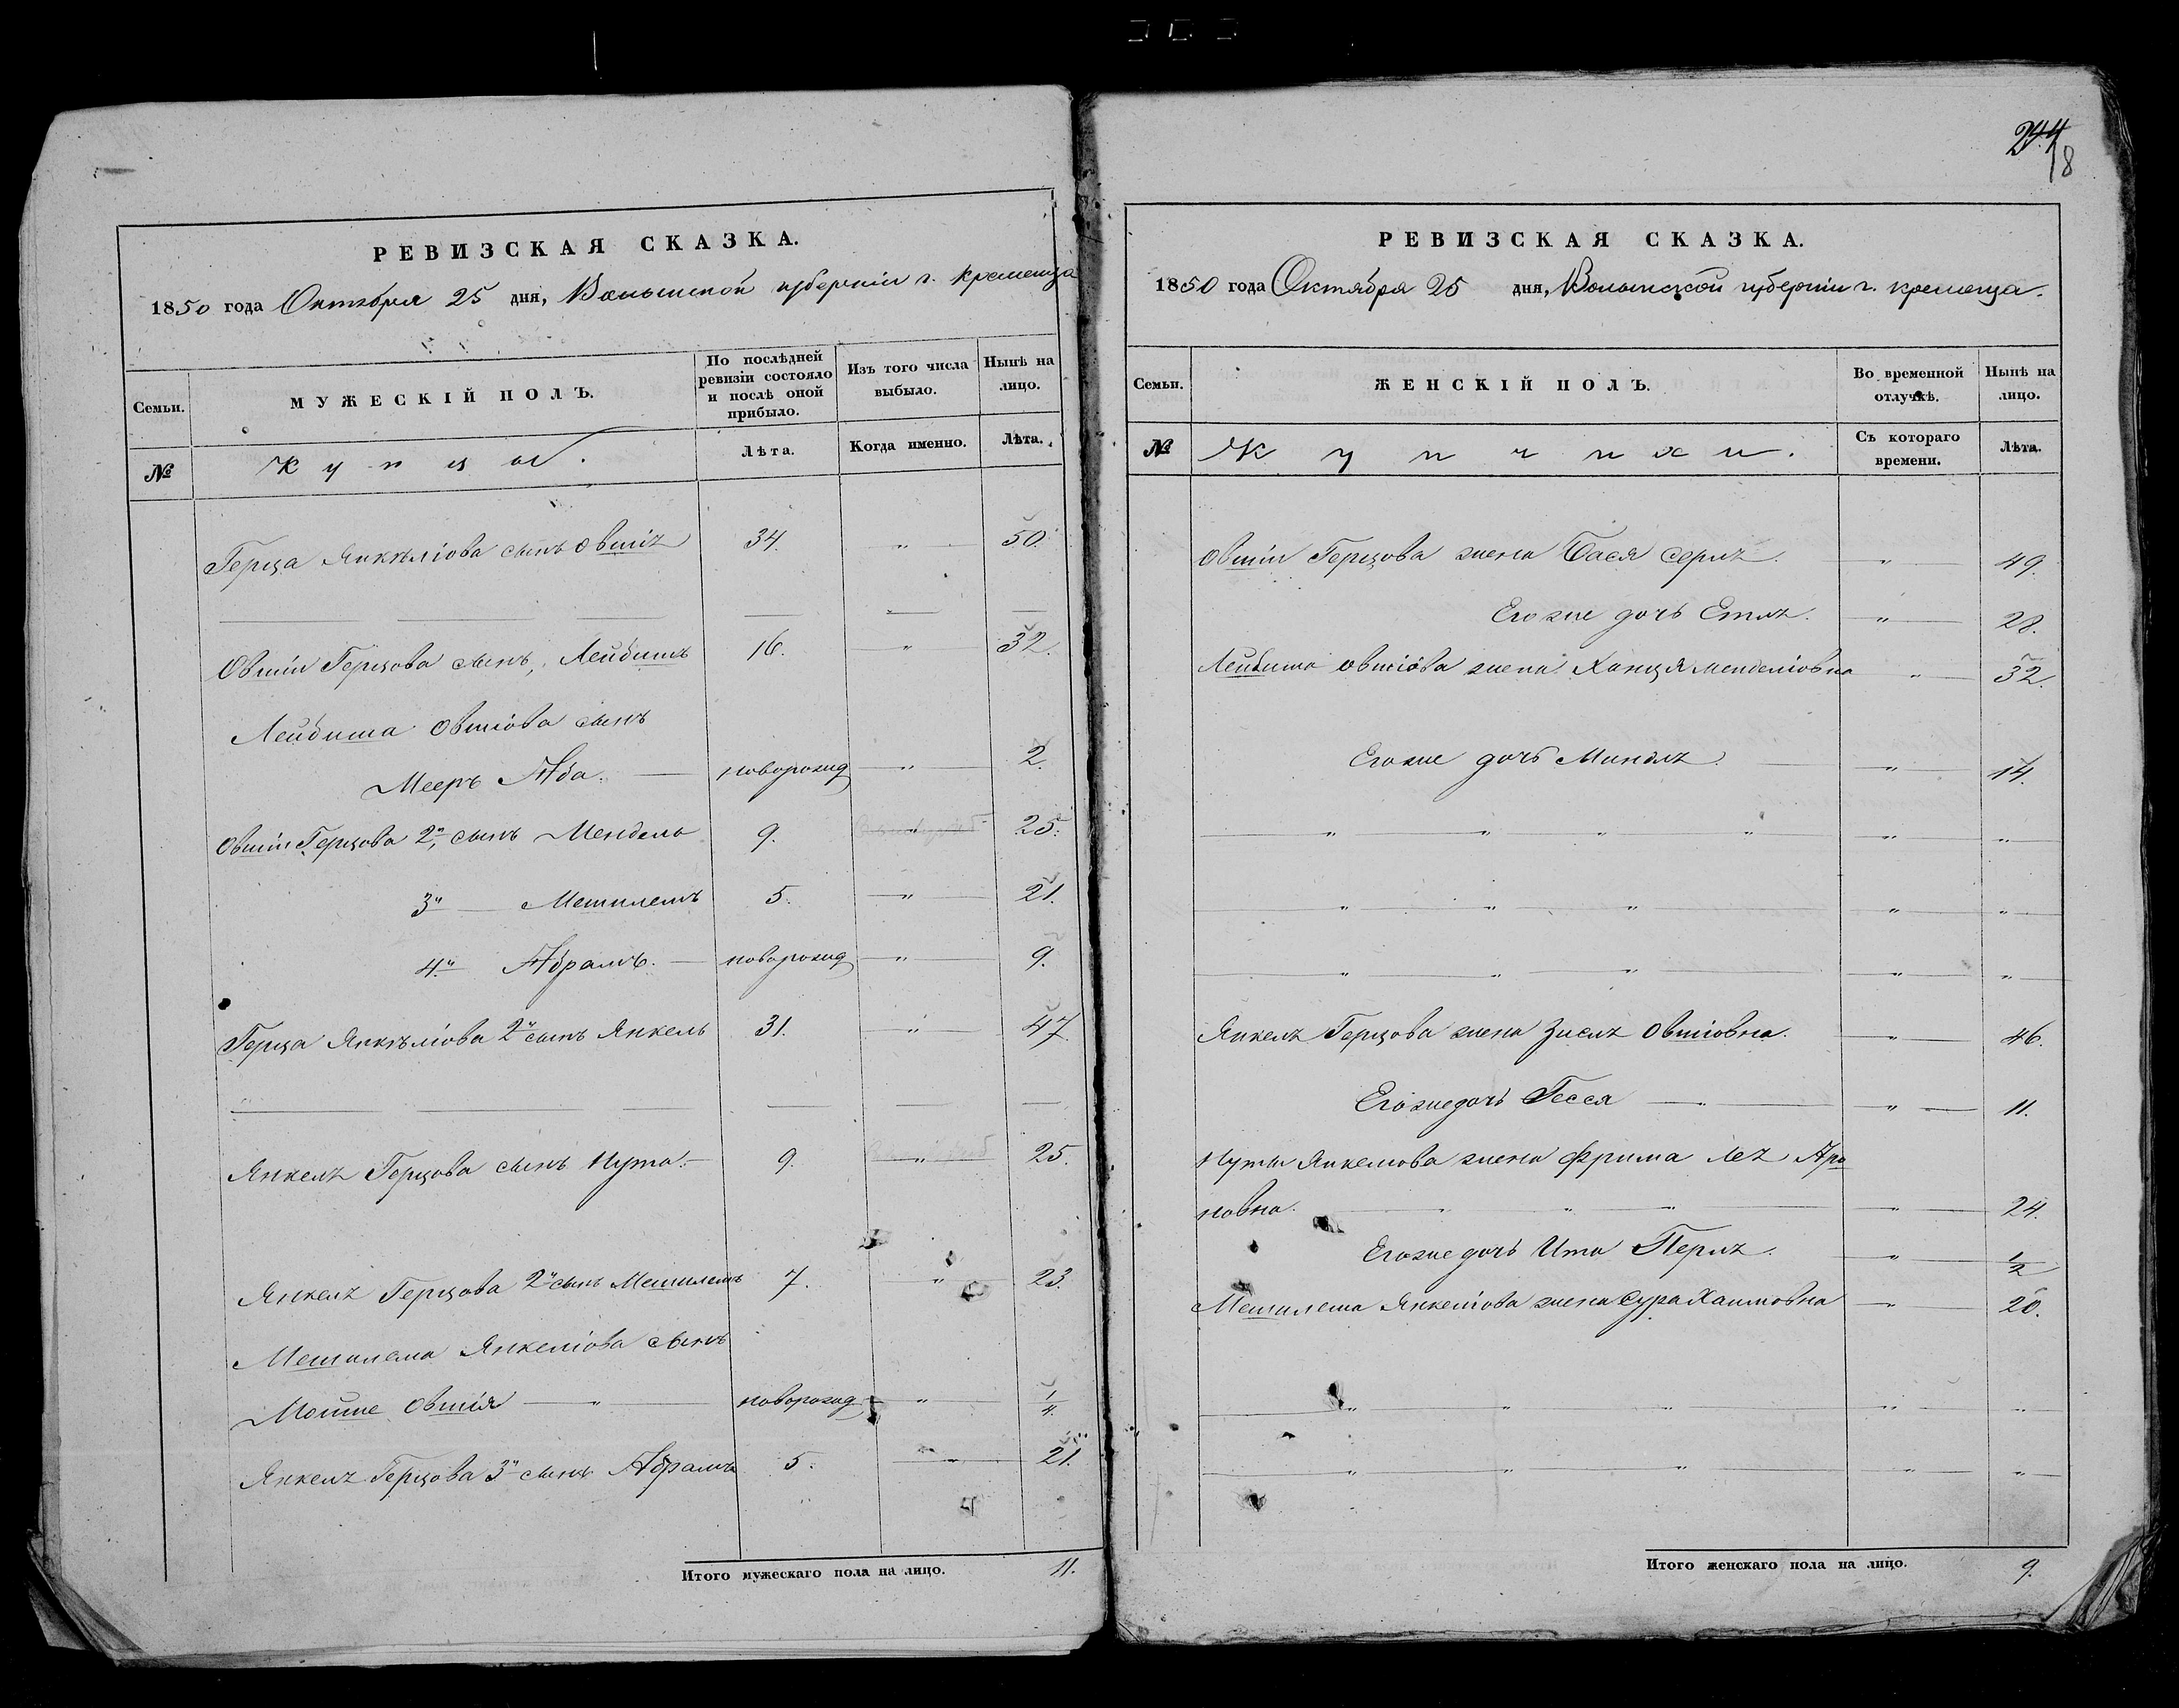 РЕВИЗСКАЯ СКАЗКА.
1850 года Октября 25 дня, Волынской губерніи г. Кременца
Семьи.
МУЖЕСКІЙ ПОЛЪ.
По послѣдней ревизіи состояло и послѣ оной прибыло.
Изъ того числа выбыло.
Нынѣ на лицо.
№
Купцы.
Лѣта.
Когда именно.
Лѣта.
Герца Янкѣліова сынъ Овшіъ 34. " 50.
"
Овшіи Герцова сынъ, Лейбишъ 16. " 32.
Лейбиша Овшіова сынъ
Мееръ Аба. новорожд " 2.
Овшіи Герцова 2й сынъ Мендель 9. " 25.
3й Мешилемъ 5. " 21.
4й Абрамъ. новорожд " 9.
Герца Янкѣліова 2й сынъ Янкель 31. " 47.
Янкелъ Герцова сынъ Нута. 9. " 25.
Янкелъ Герцова 2й сынъ Мешилемъ 7. " 23.
Мешилема Янкеліова сынъ
Мойше Овшія " новорожд " 1/4.
Янкелъ Герцова 3й сынъ Абрамъ 5. " 21.
Итого мужескаго пола на лицо. 11.
244
18
РЕВИЗСКАЯ СКАЗКА.
1850 года Октября 25 дня, Волынской губерніи г. кременца.
Семьи.
ЖЕНСКІЙ ПОЛЪ.
Во временной отлучкѣ.
Нынѣ на лицо.
№
Купчихи.
Съ котораго времени.
Лѣта.
Овшіи Герцова жена Бася Серлъ. " 49.
Егоже дочь Етлъ. " 28.
Лейбиша Овшіова жена Ханця Менделіовна " 32.
Егоже дочь Миндлъ. " 14.
" " " " " "
" " " " "
" " " " "
Янкелъ Герцова жена Зислъ Овшіовна. " 46.
Егоже дочь Гесся " " 11.
Нуты Янкеліова жена Фрима Леъ Аро
новна. " " " " 24.
Егоже дочь Ита Перлъ. " 1/2
Мешилема Янкеліова жена Сура Хаимовна " 20.
" " " " "
" " " " "
Итого женскаго пола на лицо. 9.